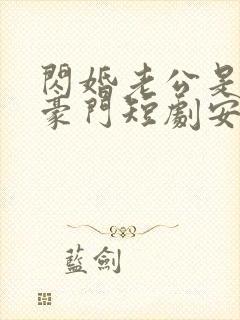 閃婚老公是
豪門短劇安
藍劍